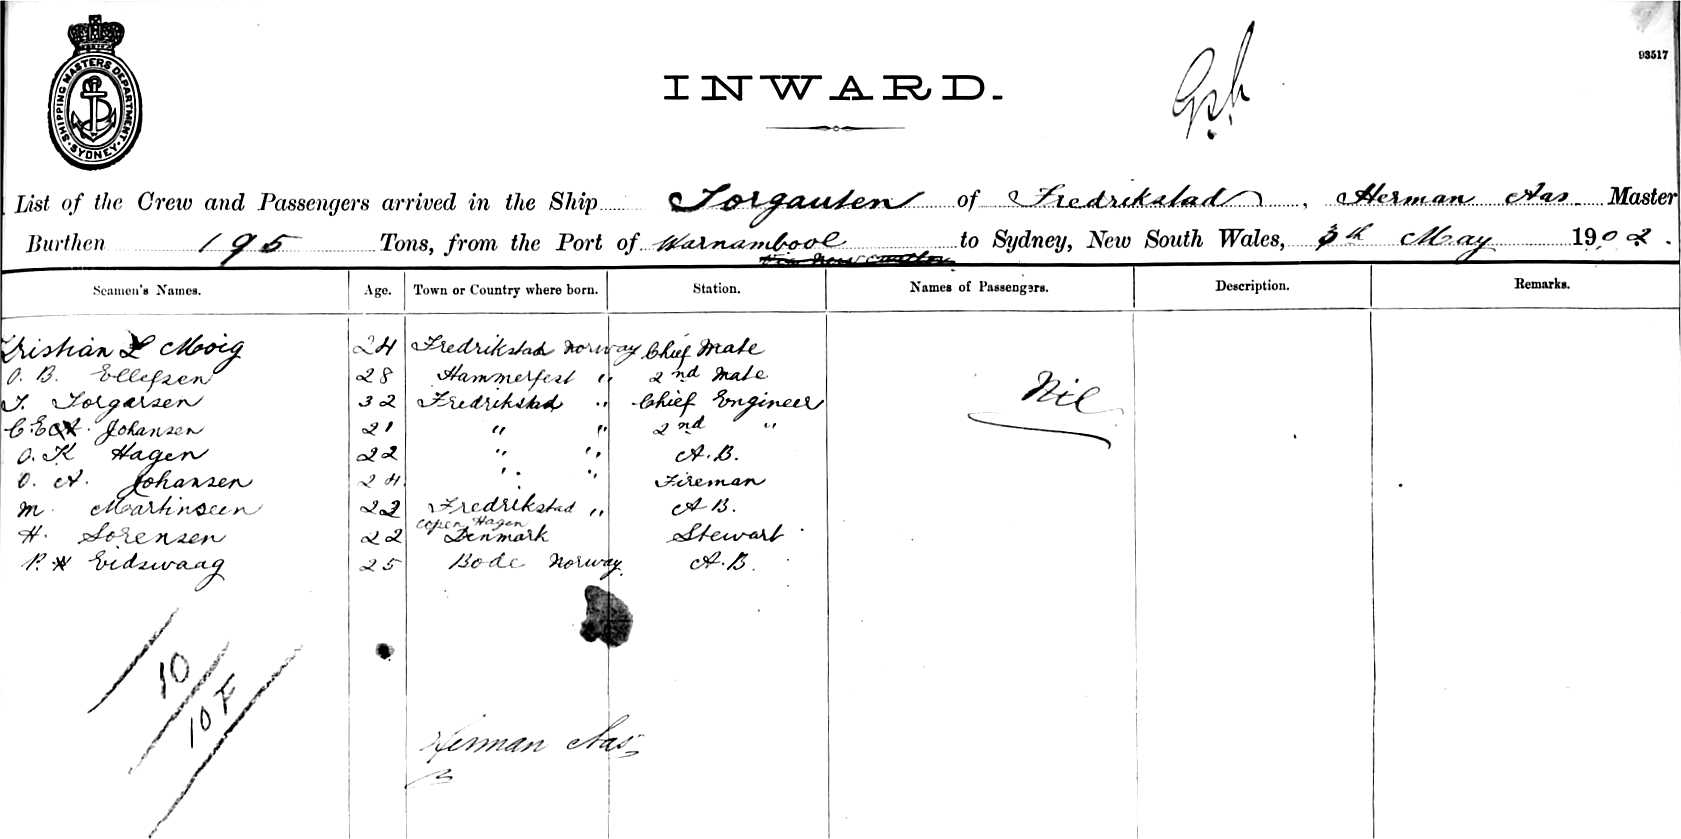 SHIPPING MASTERS DEPARTMENT · SYDNEY ·
93517
INWARD.
List of the Crew and Passengers arrived in the Ship Torgauten of Fredrikstad, Herman Aas Master
Burthen 195 Tons, from the Port of Warnambool to Sydney, New South Wales, 5th May 1902.
via Newcastle
Seamen's Names. Age. Town or Country where born. Station. Names of Passengers. Description. Remarks.
Kristian L Moig 24 Fredrikstad Norway Chief Mate
O. B. Ellefsen 28 Hammerfest " 2nd Mate
T. Torgersen 32 Fredrikstad " Chief Engineer
Nil
C. E. Johansen 21 " " 2nd "
O. K Hagen 22 " " A.B.
O. A. Johansen 24 " " Fireman
M. Martinseen 22 Fredrikstad " A B.
Copen Hagen
H. Sorensen 22 Denmark Stewart
P. Eidswaag 25 Bode Norway A.B.
10
10 F
Herman Aas